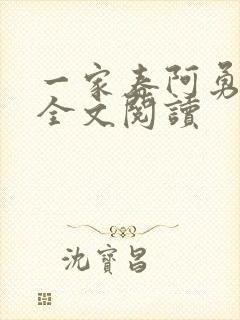 一家春阿勇
全文閱讀
沈寶昌